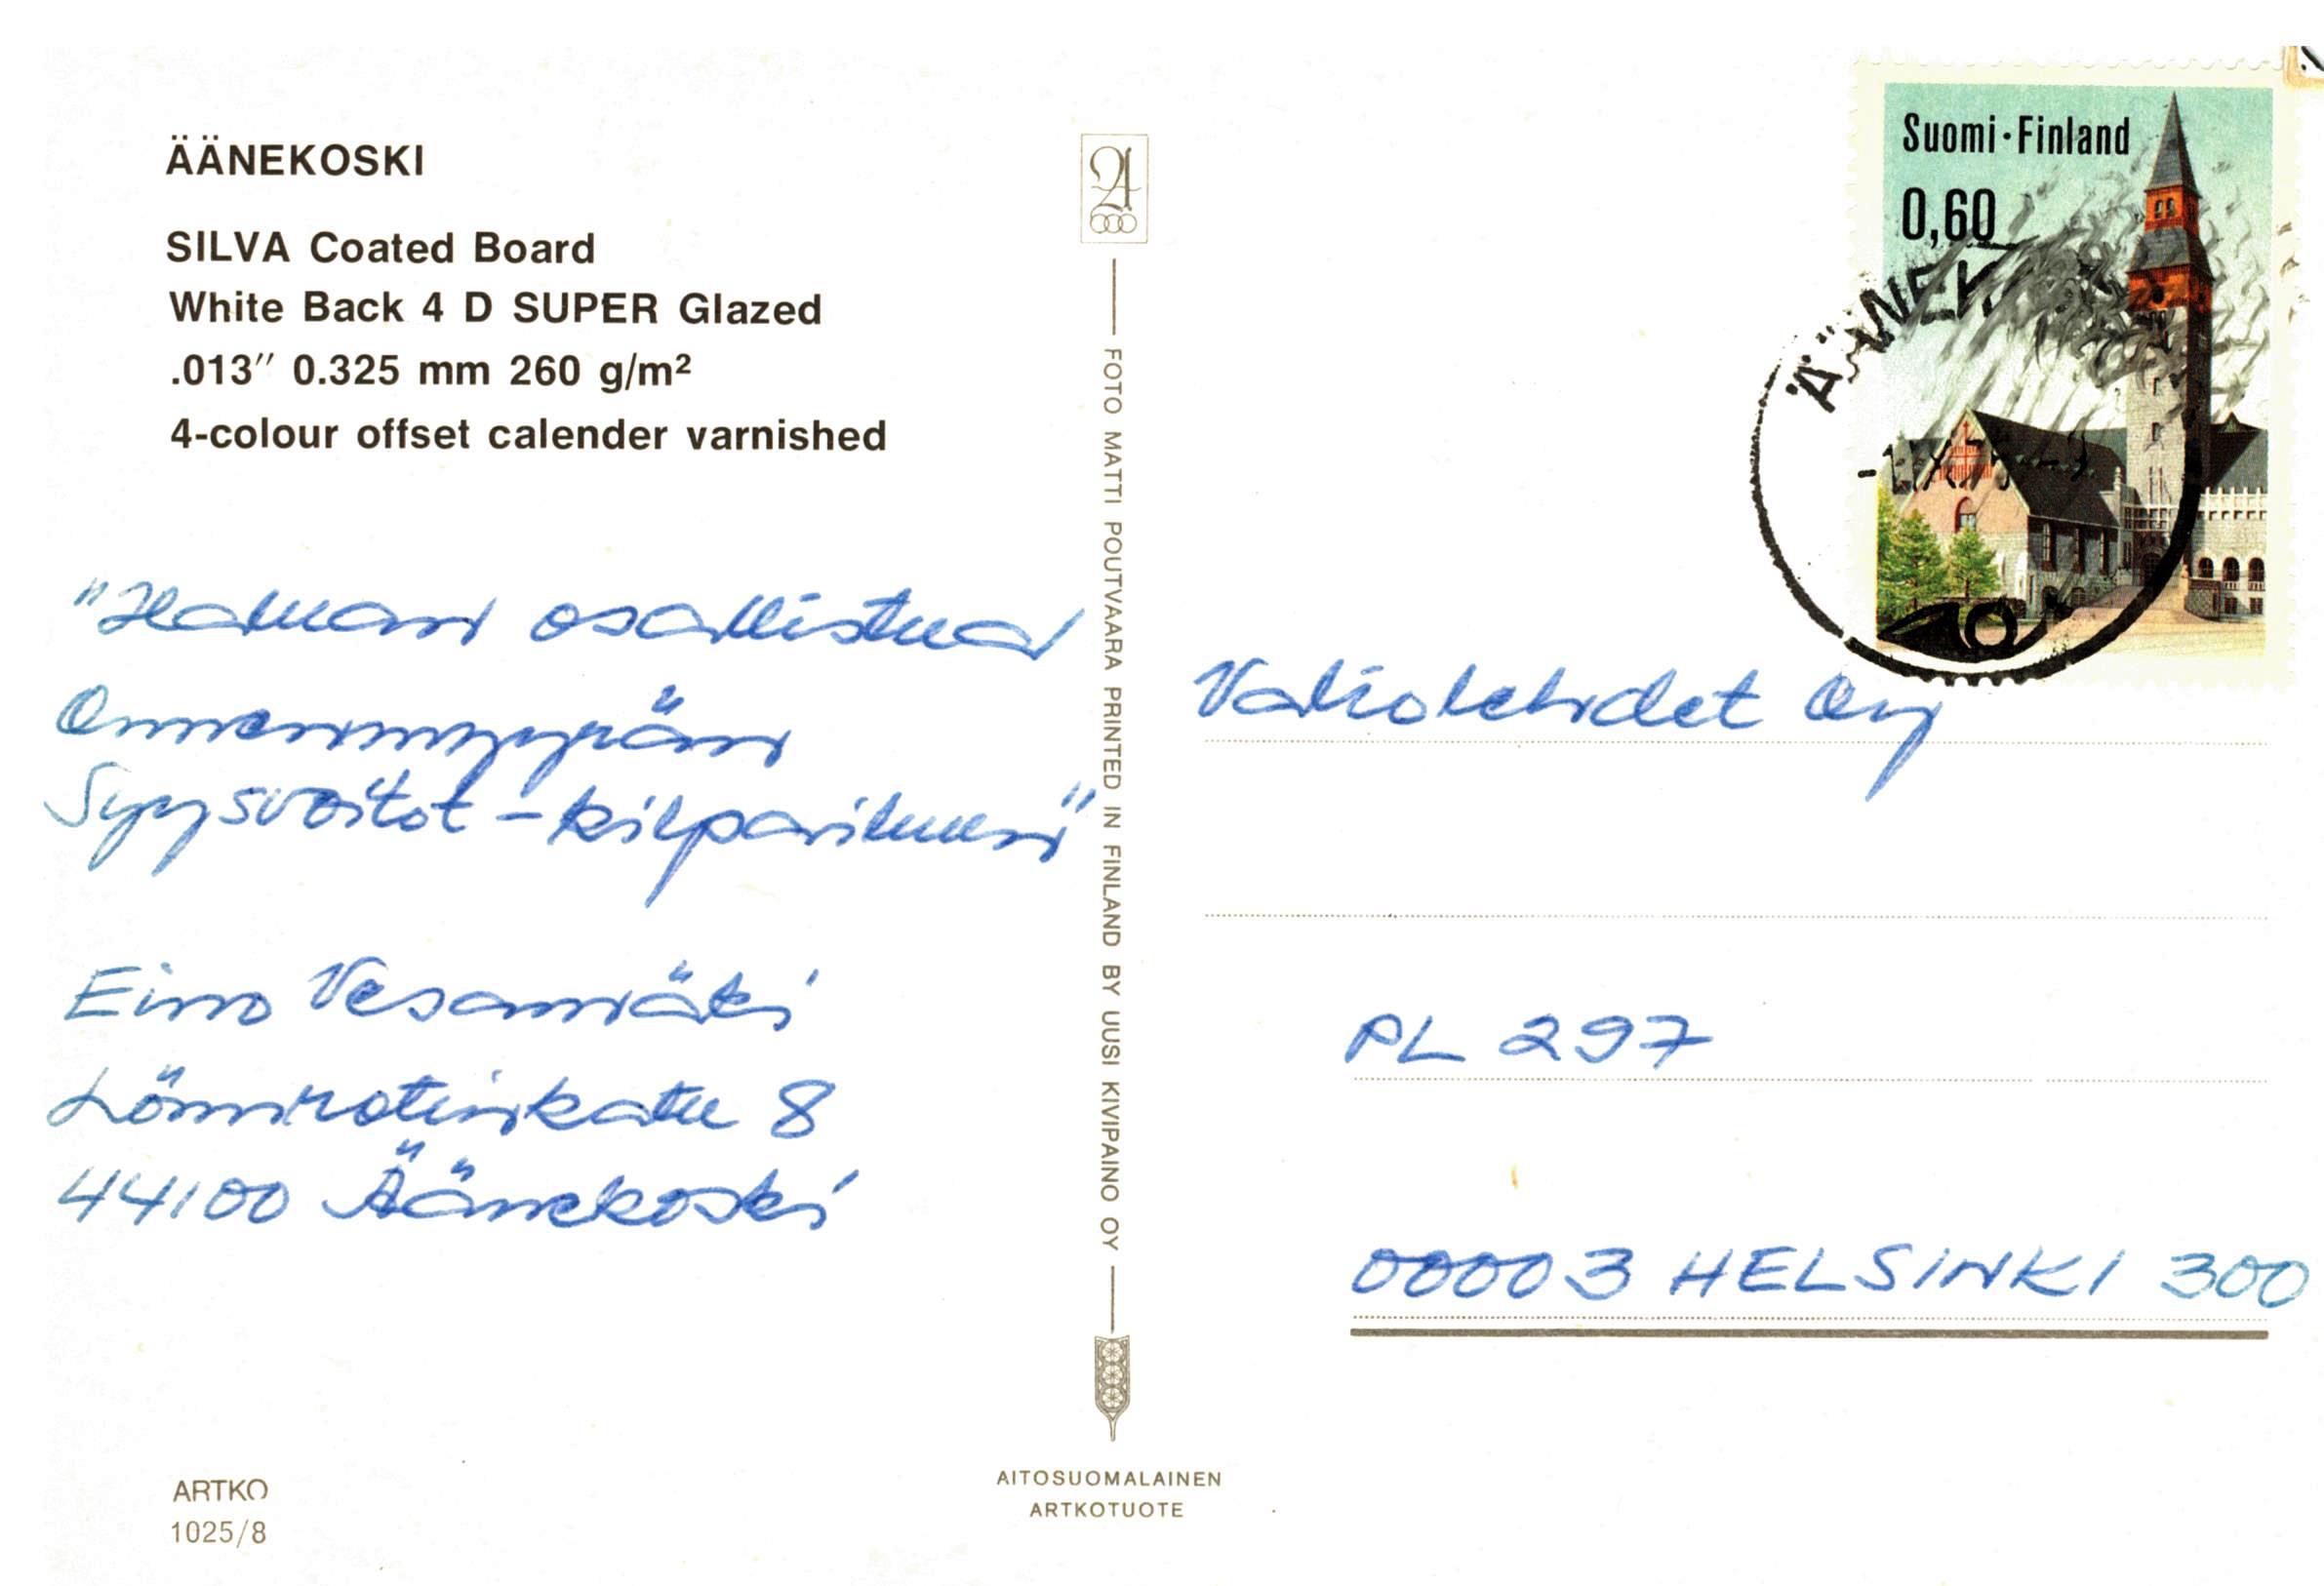 ÄÄNEKOSKI
SILVA Coated Board
White Back 4 D SUPER Glazed
.013″ 0.325 mm 260 g/m²
4-colour offset calender varnished
"Haluan osallistua
Onnenmyyrän
Syysvoitot - kilpailuun"
Eino Vesamäki
Lönnrotinkatu 8
44100 Äänekoski
ARTKO
1025/8
FOTO MATTI POUTVAARA PRINTED IN FINLAND BY UUSI KIVIPAINO OY
AITOSUOMALAINEN
ARTKOTUOTE
Suomi·Finland
0,60
ÄÄNEK
Valiolehdet Oy
PL 297
00003 HELSINKI 300